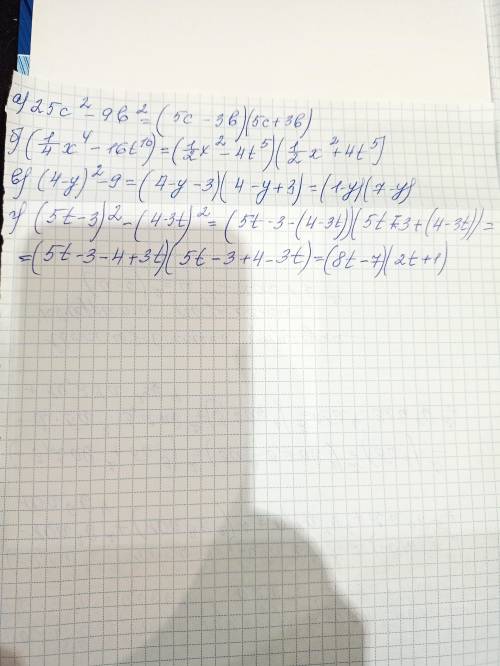 а) 25c² - 9b² = (5c - 3b)(5c + 3b)
б) (1/4 x⁴ - 16t¹⁰) = (1/2 x² - 4t⁵)(1/2 x² + 4t⁵)
в) (4-y)² - 9 = (4-y-3)(4-y+3) = (1-y)(7-y)
г) (5t-3)² - (4-3t)² = (5t-3-(4-3t))(5t-3+(4-3t)) =
= (5t-3-4+3t)(5t-3+4-3t) = (8t-7)(2t+1)